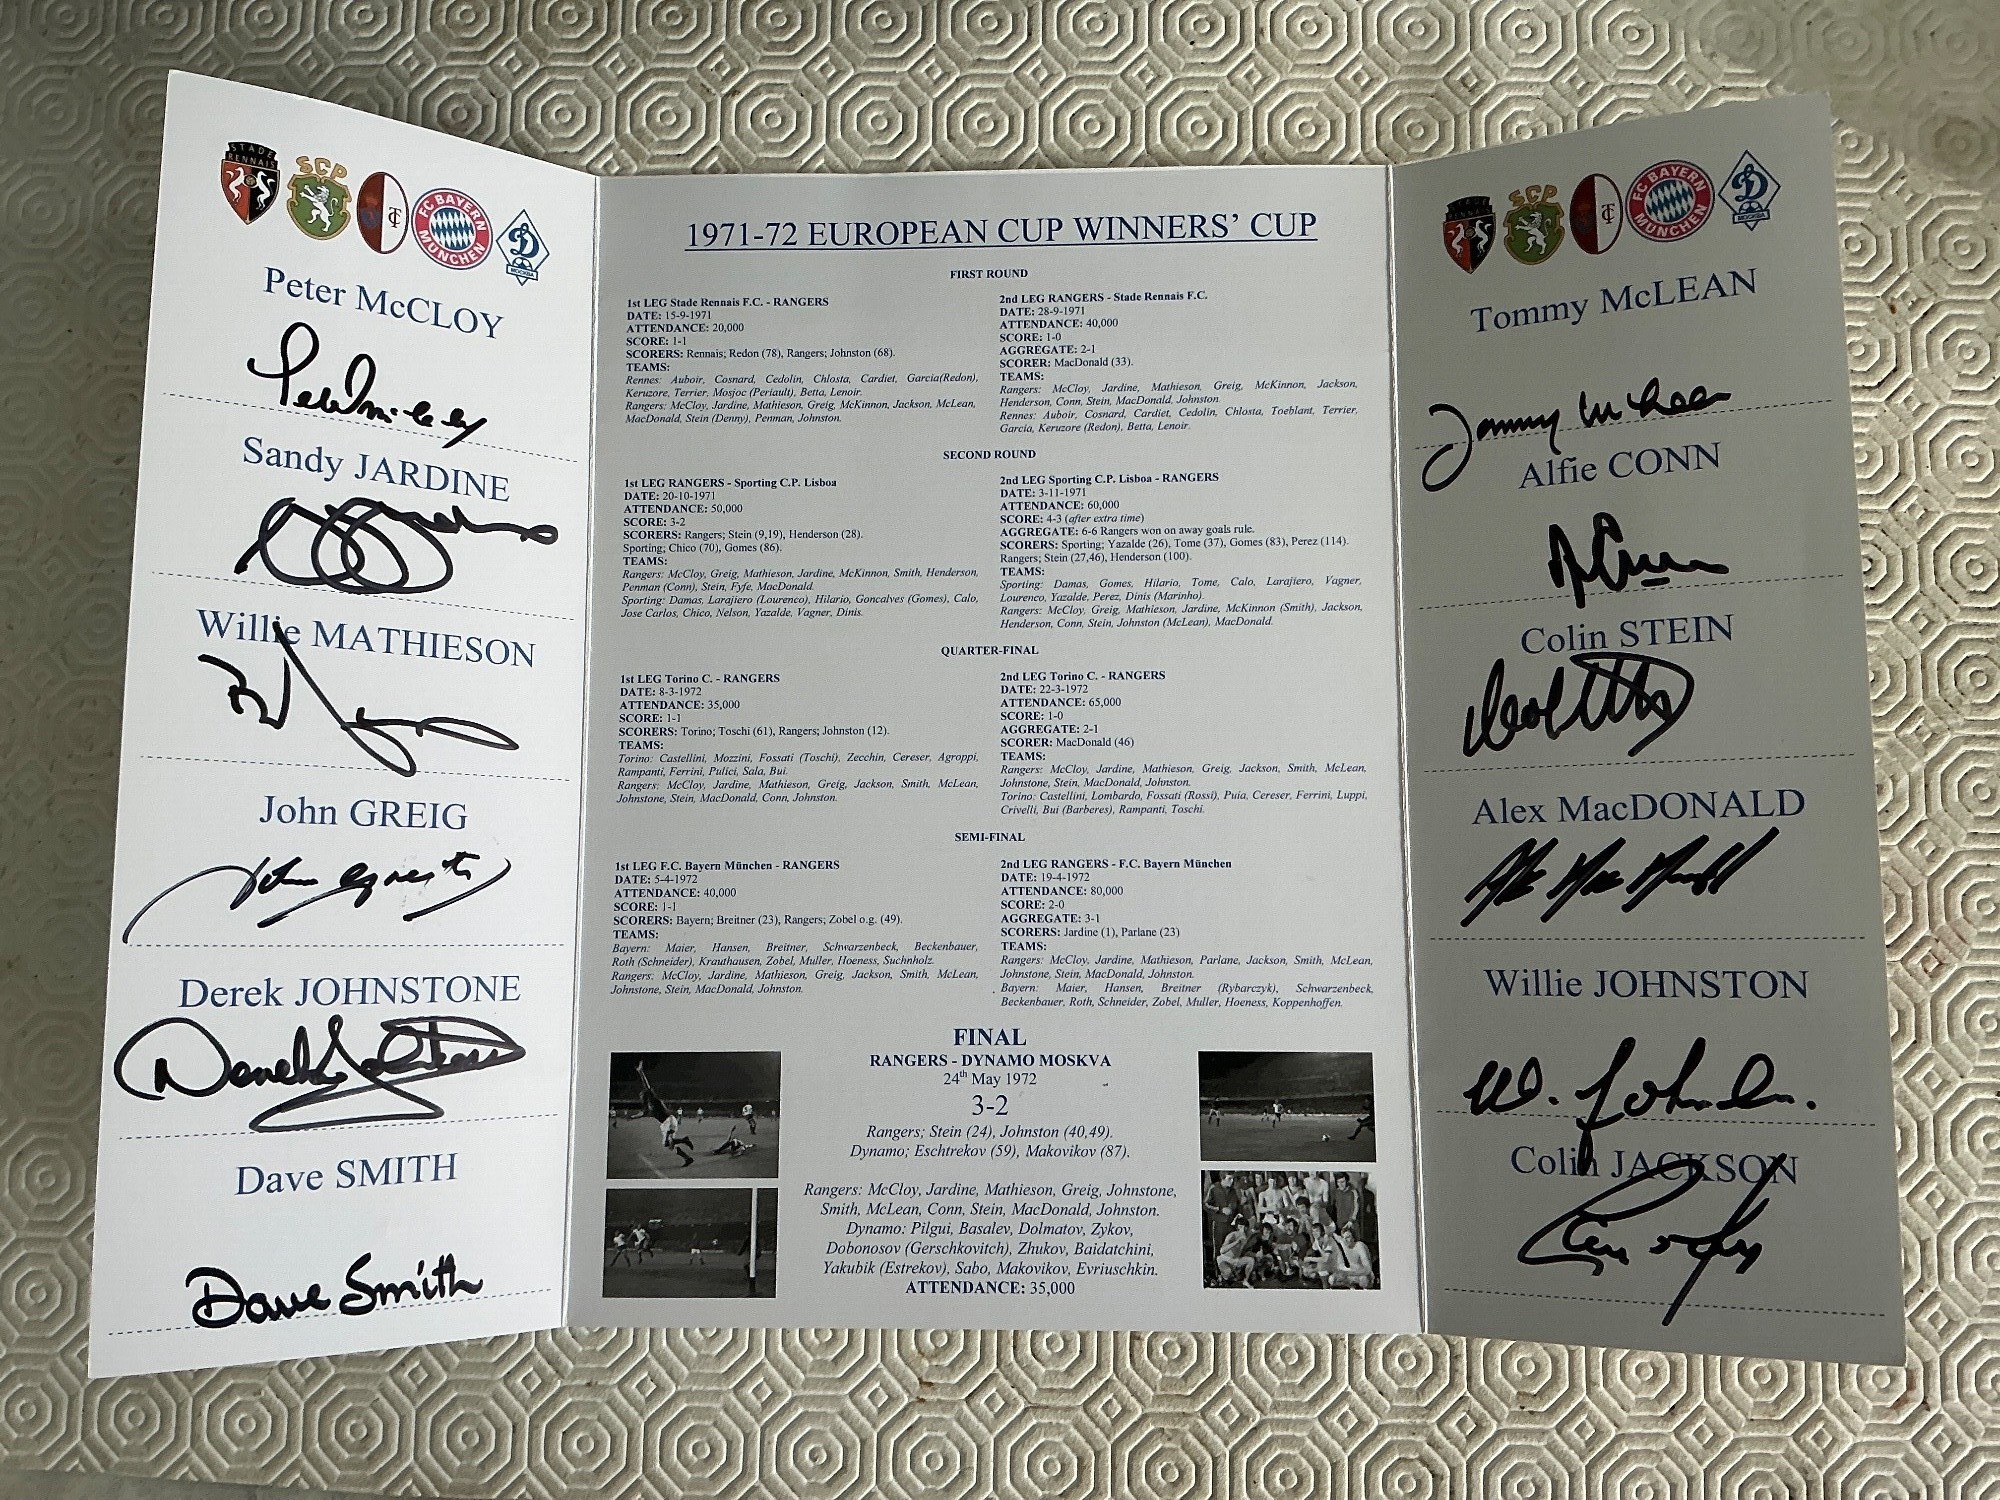 STADE
RENNAIS
SCP
TC
FC BAYERN
MÜNCHEN
МОСКВА
Peter McCLOY
Sandy JARDINE
Willie MATHIESON
John GREIG
John Greig
Derek JOHNSTONE
Derek Johnstone
Dave SMITH
Dave Smith
1971-72 EUROPEAN CUP WINNERS' CUP
FIRST ROUND
1st LEG Stade Rennais F.C. - RANGERS
DATE: 15-9-1971
ATTENDANCE: 20,000
SCORE: 1-1
SCORERS: Rennais; Redon (78), Rangers; Johnston (68).
TEAMS:
Rennes: Auboir, Cosnard, Cedolin, Chlosta, Cardiet, Garcia(Redon),
Keruzore, Terrier, Mosjoc (Periault), Betta, Lenoir.
Rangers: McCloy, Jardine, Mathieson, Greig, McKinnon, Jackson, McLean,
MacDonald, Stein (Denny), Penman, Johnston.
2nd LEG RANGERS - Stade Rennais F.C.
DATE: 28-9-1971
ATTENDANCE: 40,000
SCORE: 1-0
AGGREGATE: 2-1
SCORER: MacDonald (33).
TEAMS:
Rangers: McCloy, Jardine, Mathieson, Greig, McKinnon, Jackson,
Henderson, Conn, Stein, MacDonald, Johnston.
Rennes: Auboir, Cosnard, Cardiet, Cedolin, Chlosta, Toeblant, Terrier,
Garcia, Keruzore (Redon), Betta, Lenoir.
SECOND ROUND
1st LEG RANGERS - Sporting C.P. Lisboa
DATE: 20-10-1971
ATTENDANCE: 50,000
SCORE: 3-2
SCORERS: Rangers; Stein (9,19), Henderson (28).
Sporting; Chico (70), Gomes (86).
TEAMS:
Rangers: McCloy, Greig, Mathieson, Jardine, McKinnon, Smith, Henderson,
Penman (Conn), Stein, Fyfe, MacDonald.
Sporting: Damas, Larajiero (Lourenco), Hilario, Goncalves (Gomes), Calo,
Jose Carlos, Chico, Nelson, Yazalde, Vagner, Dinis.
2nd LEG Sporting C.P. Lisboa - RANGERS
DATE: 3-11-1971
ATTENDANCE: 60,000
SCORE: 4-3 (after extra time)
AGGREGATE: 6-6 Rangers won on away goals rule.
SCORERS: Sporting; Yazalde (26), Tome (37), Gomes (83), Perez (114).
Rangers; Stein (27,46), Henderson (100).
TEAMS:
Sporting: Damas, Gomes, Hilario, Tome, Calo, Larajiero, Vagner,
Lourenco, Yazalde, Perez, Dinis (Marinho).
Rangers: McCloy, Greig, Mathieson, Jardine, McKinnon (Smith), Jackson,
Henderson, Conn, Stein, Johnston (McLean), MacDonald.
QUARTER-FINAL
1st LEG Torino C. - RANGERS
DATE: 8-3-1972
ATTENDANCE: 35,000
SCORE: 1-1
SCORERS: Torino; Toschi (61), Rangers; Johnston (12).
TEAMS:
Torino: Castellini, Mozzini, Fossati (Toschi), Zecchin, Cereser, Agroppi,
Rampanti, Ferrini, Pulici, Sala, Bui.
Rangers: McCloy, Jardine, Mathieson, Greig, Jackson, Smith, McLean,
Johnstone, Stein, MacDonald, Conn, Johnston.
2nd LEG Torino C. - RANGERS
DATE: 22-3-1972
ATTENDANCE: 65,000
SCORE: 1-0
AGGREGATE: 2-1
SCORER: MacDonald (46)
TEAMS:
Rangers: McCloy, Jardine, Mathieson, Greig, Jackson, Smith, McLean,
Johnstone, Stein, MacDonald, Johnston.
Torino: Castellini, Lombardo, Fossati (Rossi), Puia, Cereser, Ferrini, Luppi,
Crivelli, Bui (Barberes), Rampanti, Toschi.
SEMI-FINAL
1st LEG F.C. Bayern München - RANGERS
DATE: 5-4-1972
ATTENDANCE: 40,000
SCORE: 1-1
SCORERS: Bayern; Breitner (23), Rangers; Zobel o.g. (49).
TEAMS:
Bayern: Maier, Hansen, Breitner, Schwarzenbeck, Beckenbauer,
Roth (Schneider), Krauthausen, Zobel, Muller, Hoeness, Suchnholz.
Rangers: McCloy, Jardine, Mathieson, Greig, Jackson, Smith, McLean,
Johnstone, Stein, MacDonald, Johnston.
2nd LEG RANGERS - F.C. Bayern München
DATE: 19-4-1972
ATTENDANCE: 80,000
SCORE: 2-0
AGGREGATE: 3-1
SCORERS: Jardine (1), Parlane (23)
TEAMS:
Rangers: McCloy, Jardine, Mathieson, Parlane, Jackson, Smith, McLean,
Johnstone, Stein, MacDonald, Johnston.
Bayern: Maier, Hansen, Breitner (Rybarczyk), Schwarzenbeck,
Beckenbauer, Roth, Schneider, Zobel, Muller, Hoeness, Koppenhoffen.
FINAL
RANGERS - DYNAMO MOSKVA
24th May 1972
3-2
Rangers; Stein (24), Johnston (40,49).
Dynamo; Eschtrekov (59), Makovikov (87).
Rangers: McCloy, Jardine, Mathieson, Greig, Johnstone,
Smith, McLean, Conn, Stein, MacDonald, Johnston.
Dynamo: Pilgui, Basalev, Dolmatov, Zykov,
Dobonosov (Gerschkovitch), Zhukov, Baidatchini,
Yakubik (Estrekov), Sabo, Makovikov, Evriuschkin.
ATTENDANCE: 35,000
STADE
RENNAIS
SCP
TC
FC BAYERN
MÜNCHEN
МОСКВА
Tommy McLEAN
Tommy McLean
Alfie CONN
Colin STEIN
Alex MacDONALD
Willie JOHNSTON
W. Johnston.
Colin JACKSON